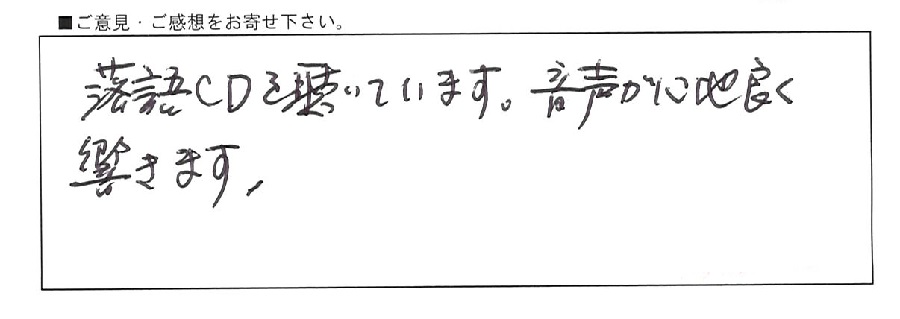 ■ご意見・ご感想をお寄せ下さい。
落語CDを聴いています。音声が心地良く
響きます。